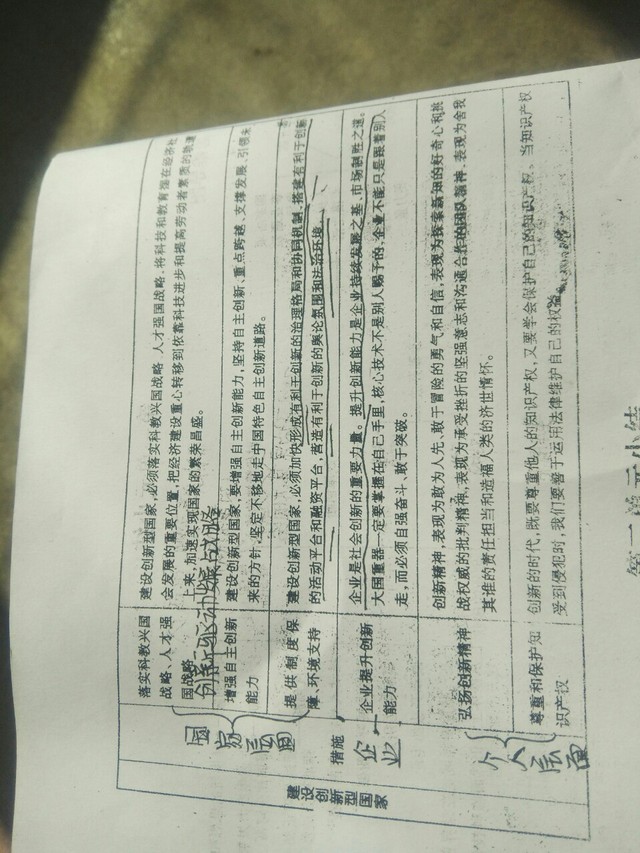 建设创新型国家
措施
国家层面
企业
个人层面
落实科教兴国
战略、人才强
国战略
创新驱动发展战略
建设创新型国家,必须落实科教兴国战略、人才强国战略,将科技和教育摆在经济社
会发展的重要位置,把经济建设重心转移到依靠科技进步和提高劳动者素质的轨道
上来,加速实现国家的繁荣昌盛。
增强自主创新
能力
建设创新型国家,要增强自主创新能力,坚持自主创新、重点跨越、支撑发展、引领未
来的方针,坚定不移地走中国特色自主创新道路。
提供制度保
障、环境支持
建设创新型国家,必须加快形成有利于创新的治理格局和协同机制,搭建有利于创新
的活动平台和融资平台,营造有利于创新的舆论氛围和法治环境。
企业提升创新
能力
企业是社会创新的重要力量。提升创新能力是企业持续发展之基、市场制胜之道。
大国重器一定要掌握在自己手里,核心技术不是别人赐予的,企业不能只是跟着别人
走,而必须自强奋斗、敢于突破。
弘扬创新精神
创新精神,表现为敢为人先、敢于冒险的勇气和自信,表现为探索新知的好奇心和挑
战权威的批判精神,表现为承受挫折的坚强意志和沟通合作的团队精神,表现为舍我
其谁的责任担当和造福人类的济世情怀。
尊重和保护知
识产权
创新的时代,既要尊重他人的知识产权,又要学会保护自己的知识产权、当知识产权
受到侵犯时,我们要善于运用法律维护自己的权益。